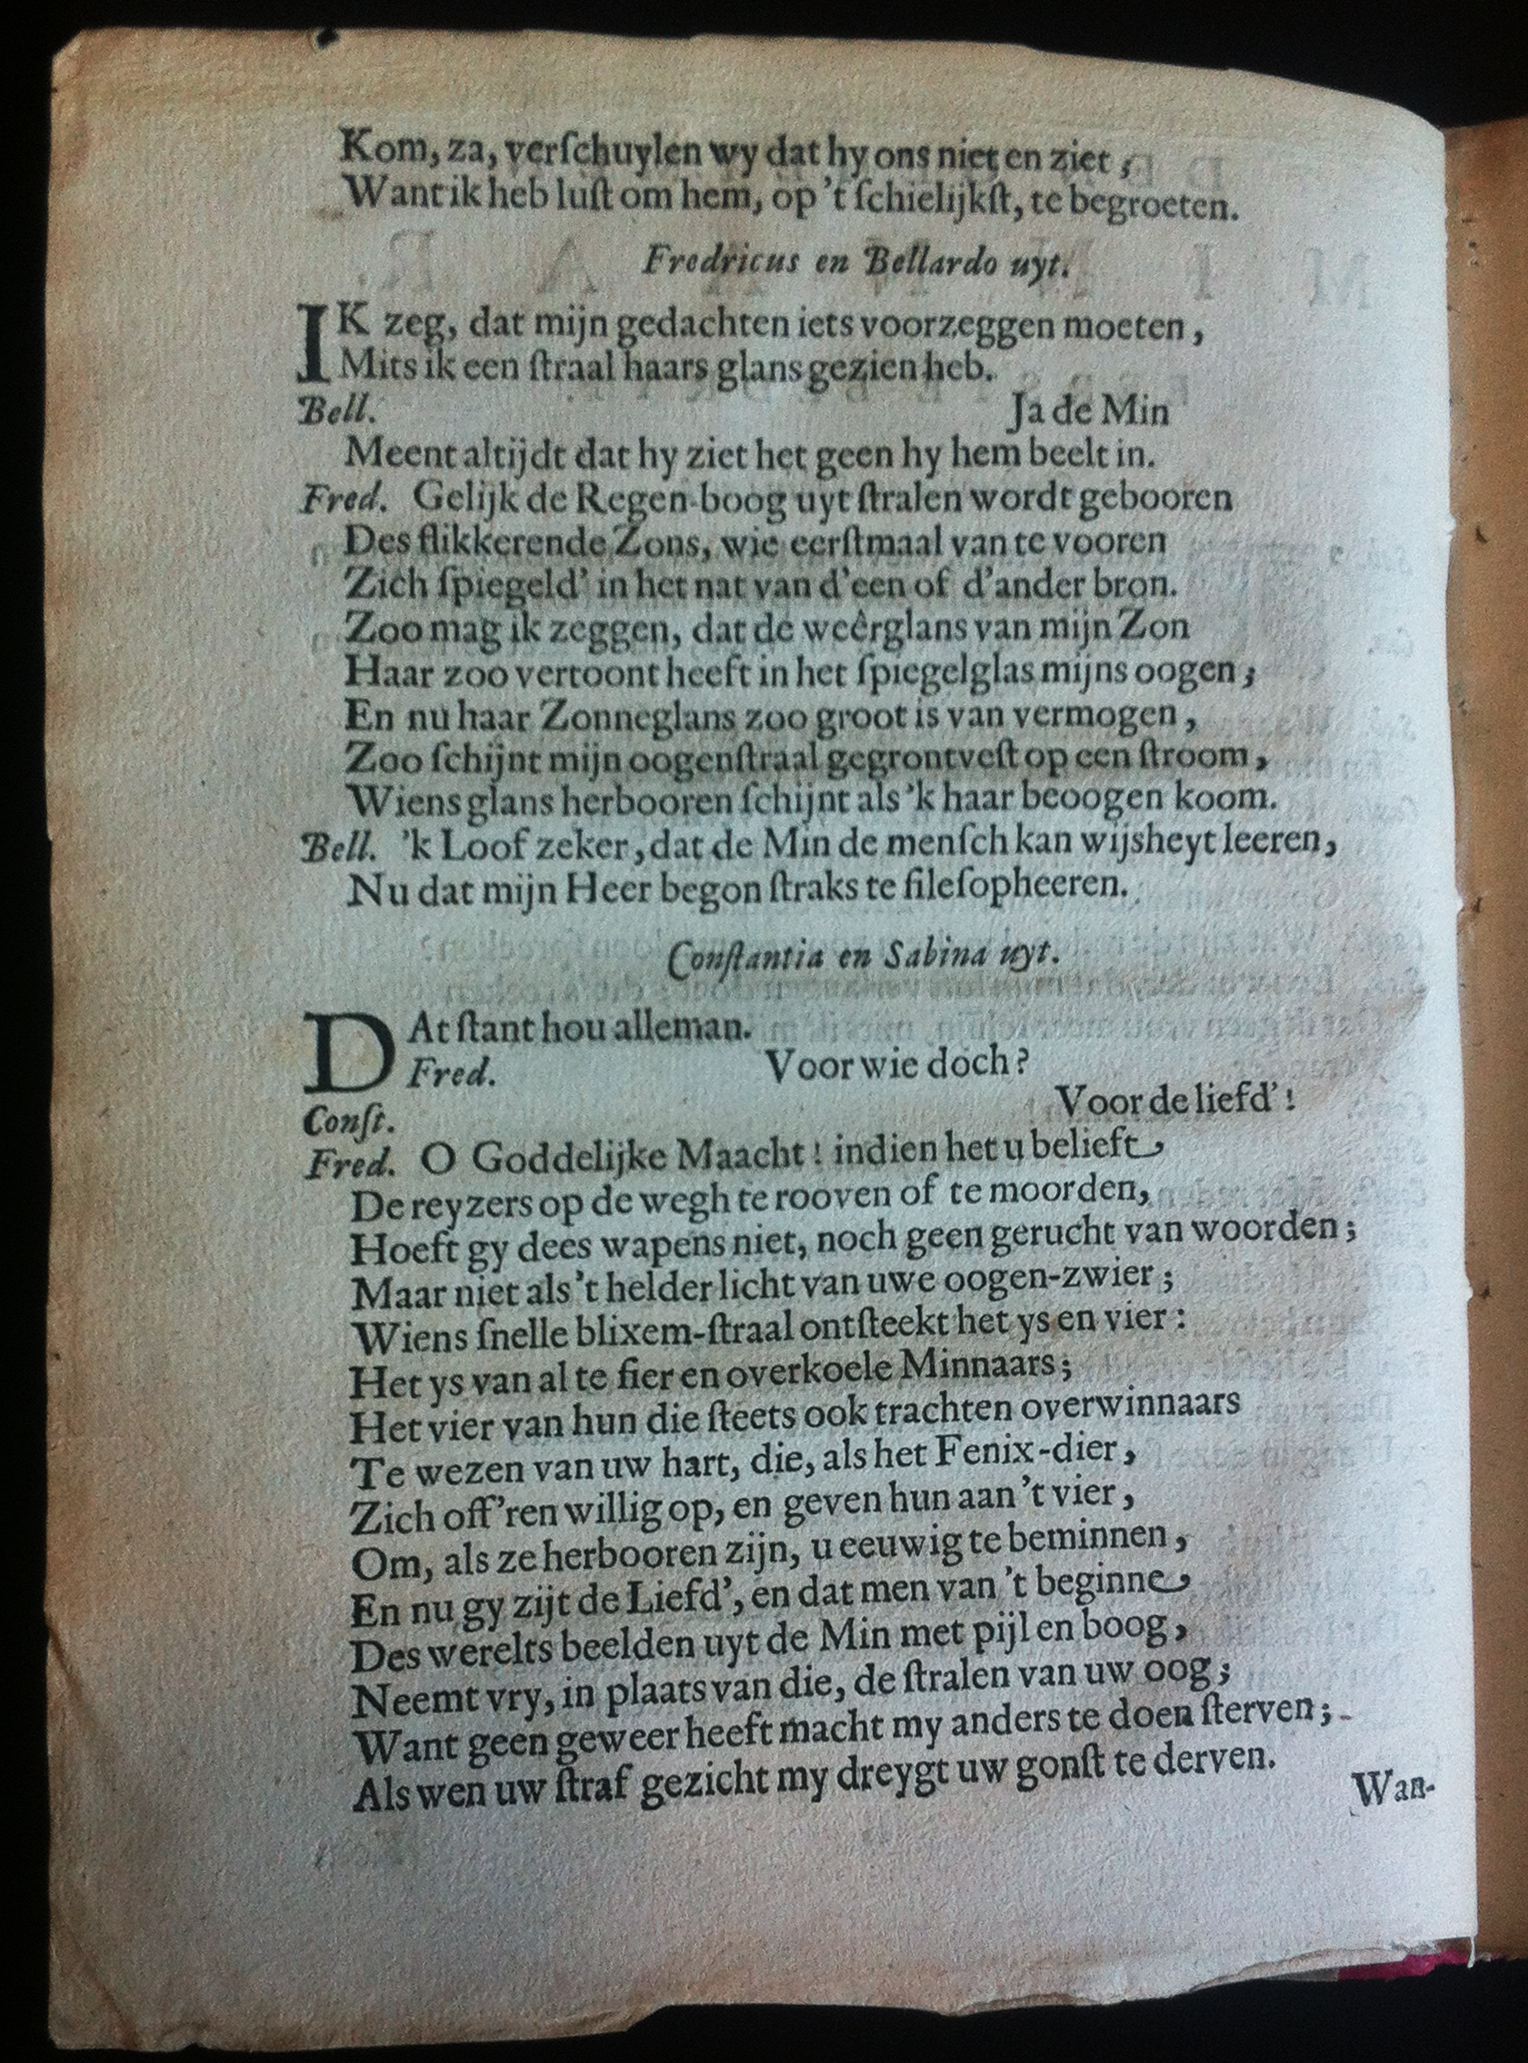 Kom, za, verſchuylen wy dat hy ons niet en ziet,
Want ik heb luſt om hem, op 't ſchielijkſt, te begroeten.
Fredricus en Bellardo uyt.
IK zeg, dat mijn gedachten iets voorzeggen moeten,
Mits ik een ſtraal haars glans gezien heb.
Bell. Ja de Min
Meent altijdt dat hy ziet het geen hy hem beelt in.
Fred. Gelijk de Regen-boog uyt ſtralen wordt gebooren
Des flikkerende Zons, wie eerſtmaal van te vooren
Zich ſpiegeld' in het nat van d'een of d'ander bron.
Zoo mag ik zeggen, dat de weêrglans van mijn Zon
Haar zoo vertoont heeft in het ſpiegelglas mijns oogen;
En nu haar Zonneglans zoo groot is van vermogen,
Zoo ſchijnt mijn oogenſtraal gegrontveſt op een ſtroom,
Wiens glans herbooren ſchijnt als 'k haar beoogen koom.
Bell. 'k Loof zeker, dat de Min de menſch kan wijsheyt leeren,
Nu dat mijn Heer begon ſtraks te fileſopheeren.
Conſtantia en Sabina uyt.
DAt ſtant hou alleman.
Fred. Voor wie doch?
Conſt. Voor de liefd'!
Fred. O Goddelijke Maacht! indien het u belieft
De reyzers op de wegh te rooven of te moorden,
Hoeft gy dees wapens niet, noch geen gerucht van woorden;
Maar niet als 't helder licht van uwe oogen-zwier;
Wiens ſnelle blixem-ſtraal ontſteekt het ys en vier:
Het ys van al te fier en overkoele Minnaars;
Het vier van hun die ſteets ook trachten overwinnaars
Te wezen van uw hart, die, als het Fenix-dier,
Zich off'ren willig op, en geven hun aan 't vier,
Om, als ze herbooren zijn, u eeuwig te beminnen,
En nu gy zijt de Liefd', en dat men van 't beginne
Des werelts beelden uyt de Min met pijl en boog,
Neemt vry, in plaats van die, de ſtralen van uw oog;
Want geen geweer heeft macht my anders te doen ſterven;
Als wen uw ſtraf gezicht my dreygt uw gonſt te derven.
Wan-